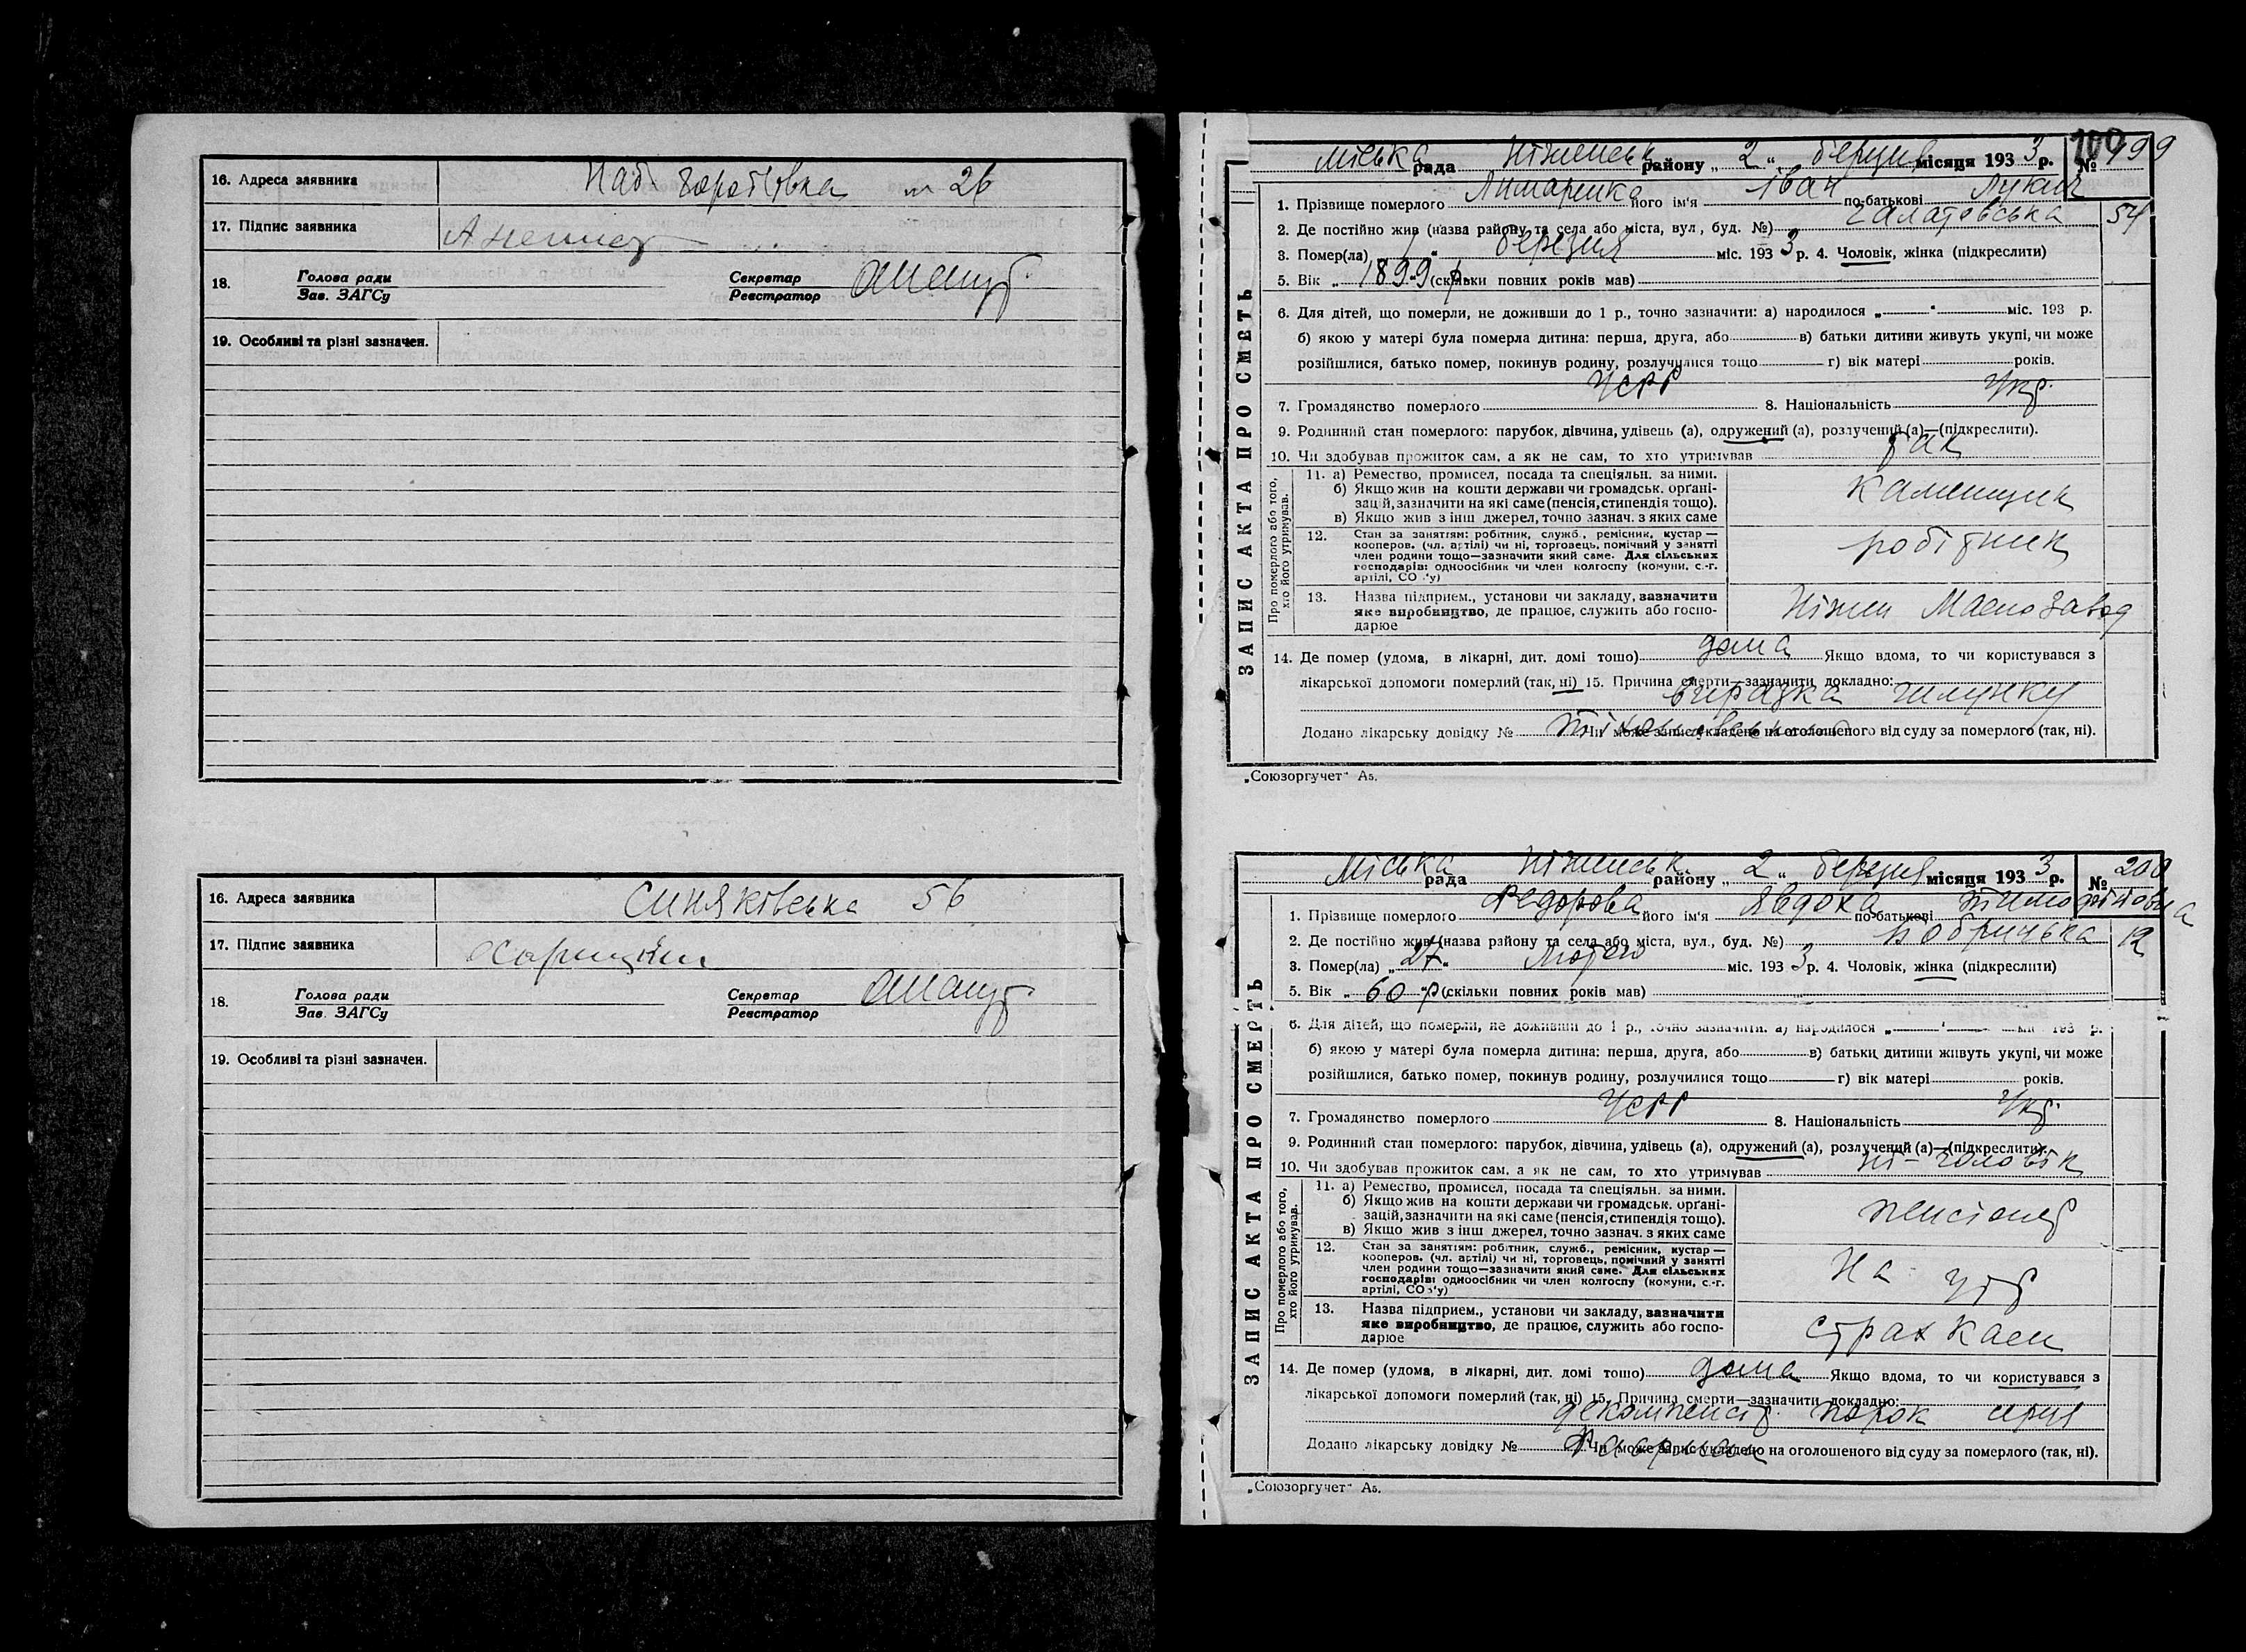 16. Адреса заявника Наб. 26
17. Підпис заявника
18. Голова ради
Зав. ЗАГСу
Секретар
Реєстратор
19. Особливі та різні зазначен.
16. Адреса заявника Синяківська 56
17. Підпис заявника
18. Голова ради
Зав. ЗАГСу
Секретар
Реєстратор
19. Особливі та різні зазначен.
ЗАПИС АКТА ПРО СМЕТЬ
міська рада Ніженськ району „ 2 " березня місяця 193 3 р. № 199
100
1. Прізвище померлого Лимаренко його ім'я Іван по-батькові Лукич
2. Де постійно жив (назва району та села або міста, вул, буд. №) 54
3. Помер(ла) „ 1 " березня міс. 193 3 р. 4. Чоловік, жінка (підкреслити)
5. Вік „ 1899 р. (скільки повних років мав)
6. Для дітей, що померли, не доживши до 1 р., точно зазначити: а) народилося „ " міс. 193 р.
б) якою у матері була померла дитина: перша, друга, або в) батьки дитини живуть укупі, чи може
розійшлися, батько помер, покинув родину, розлучилися тощо г) вік матері років.
7. Громадянство померлого УСРР 8. Національність Укр.
9. Родинний стан померлого: парубок, дівчина, удівець (а), одружений (а), розлучений (а)—(підкреслити).
10. Чи здобував прожиток сам, а як не сам, то хто утримував так
Про померлого або того,
хто його утримував.
11. а) Ремество, промисел, посада та спеціяльн. за ними.
б) Якщо жив на кошти держави чи громадськ. орґані-
зацій, зазначити на які саме (пенсія, стипендія тощо).
в) Якщо жив з інш джерел, точно зазнач. з яких саме
каменщик
12. Стан за заняттям: робітник, служб., ремісник, кустар—
кооперов. (чл. артілі) чи ні, торговець, помічний у занятті
член родини тощо—зазначити який саме. Для сільських
господарів: одноосібник чи член колгоспу (комуни, с.-г.
артілі, СОЗ'у)
робітник
13. Назва підприєм., установи чи закладу, зазначити
яке виробництво, де працює, служить або госпо-
дарює
Ніжен Маслозавод
14. Де помер (удома, в лікарні, дит. домі тошо) дома Якщо вдома, то чи користувався з
лікарської допомоги померлий (так, ні) 15. Причина смерти—зазначити докладно:
виразка шлунку
Додано лікарську довідку № Чи може запис укладено на оголошеного від суду за померлого (так, ні).
„Союзоргучет" А5.
ЗАПИС АКТА ПРО СМЕРТЬ
Міська рада Ніженськ району „ 2 " березня місяця 193 3 р. № 200
1. Прізвище померлого Федорова його ім'я Явдоха по-батькові Тимофіївна
2. Де постійно жив (назва району та села або міста, вул., буд. №) 12
3. Помер(ла) „ 27 " Лютого міс. 193 3 р. 4. Чоловік, жінка (підкреслити)
5. Вік „ 60 " р (скільки повних років мав)
6. Для дітей, що померли, не доживши до 1 р., точно зазначити: а) народилося „ " міс 193 р.
б) якою у матері була померла дитина: перша, друга, або в) батьки дитини живуть укупі, чи може
розійшлися, батько помер, покинув родину, розлучилися тощо г) вік матері років.
7. Громадянство померлого УСРР 8. Національність Укр.
9. Родинний стан померлого: парубок, дівчина, удівець (а), одружений (а), розлучений (а)—(підкреслити).
10. Чи здобував прожиток сам, а як не сам, то хто утримував ні-чоловік
Про померлого або того,
хто його утримував.
11. а) Ремество, промисел, посада та спеціяльн. за ними.
б) Якщо жив на кошти держави чи громадськ. орґані-
зацій, зазначити на які саме (пенсія, стипендія тощо).
в) Якщо жив з інш джерел, точно зазнач. з яких саме
пенсіонер
12. Стан за заняттям: робітник, служб., ремісник, кустар—
кооперов. (чл. артілі) чи ні, торговець, помічний у занятті
член родини тощо—зазначити який саме. Для сільських
господарів: одноосібник чи член колгоспу (комуни, с.-г.
артілі, СОЗ'у)
На утр
13. Назва підприєм., установи чи закладу, зазначити
яке виробництво, де працює, служить або госпо-
дарює
страхкаси
14. Де помер (удома, в лікарні, дит. домі тошо) дома Якщо вдома, то чи користувався з
лікарської допомоги померлий (так, ні) 15. Причина смерти—зазначити докладно:
декомпенсір. порок серця
Додано лікарську довідку № Чи може запис укладено на оголошеного від суду за померлого (так, ні).
„Союзоргучет" А5.